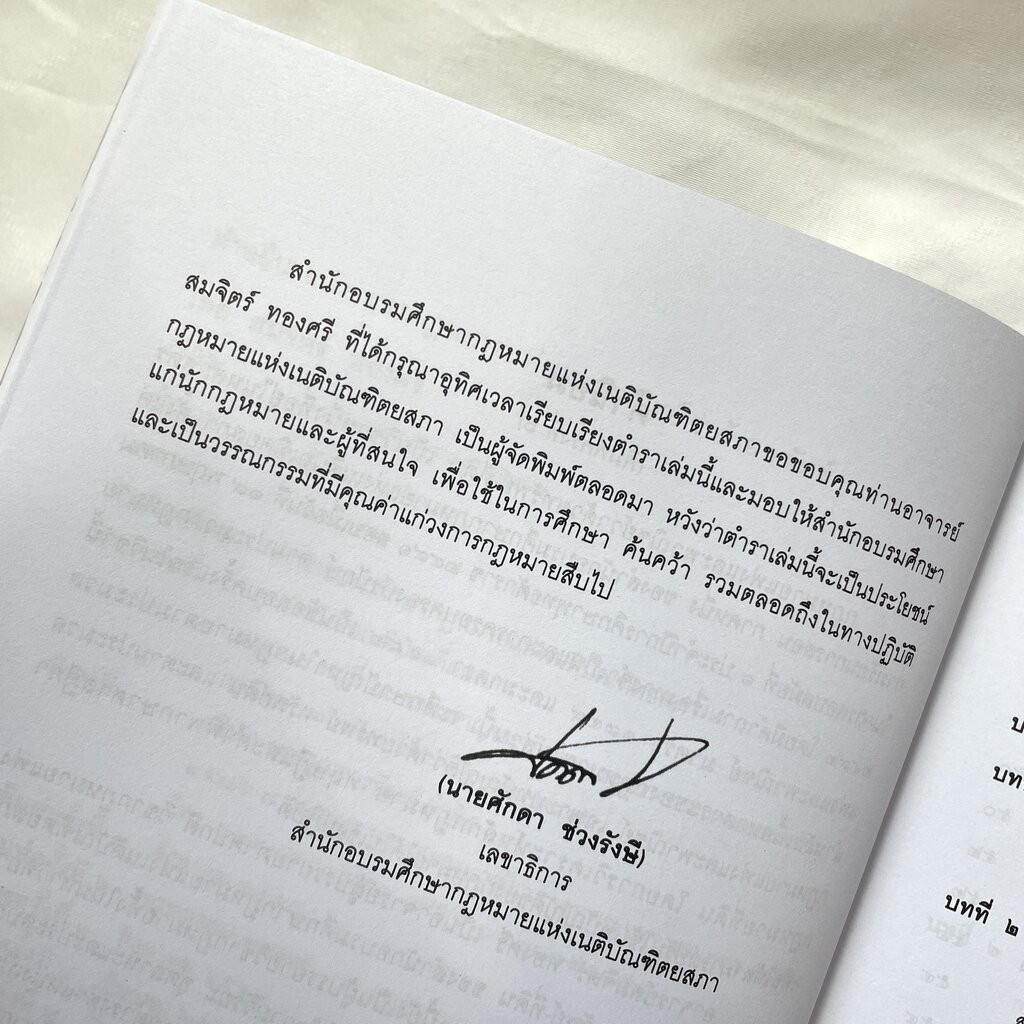 สำนักอบรมศึกษากฎหมายแห่งเนติบัณฑิตยสภาขอขอบคุณท่านอาจารย์
สมจิตร์ ทองศรี ที่ได้กรุณาอุทิศเวลาเรียบเรียงตำราเล่มนี้และมอบให้สำนักอบรมศึกษา
กฎหมายแห่งเนติบัณฑิตยสภา เป็นผู้จัดพิมพ์ตลอดมา หวังว่าตำราเล่มนี้จะเป็นประโยชน์
แก่นักกฎหมายและผู้ที่สนใจ เพื่อใช้ในการศึกษา ค้นคว้า รวมตลอดถึงในทางปฏิบัติ
และเป็นวรรณกรรมที่มีคุณค่าแก่วงการกฎหมายสืบไป
(นายศักดา ช่วงรังษี)
เลขาธิการ
สำนักอบรมศึกษากฎหมายแห่งเนติบัณฑิตยสภา
บทที่ ๒